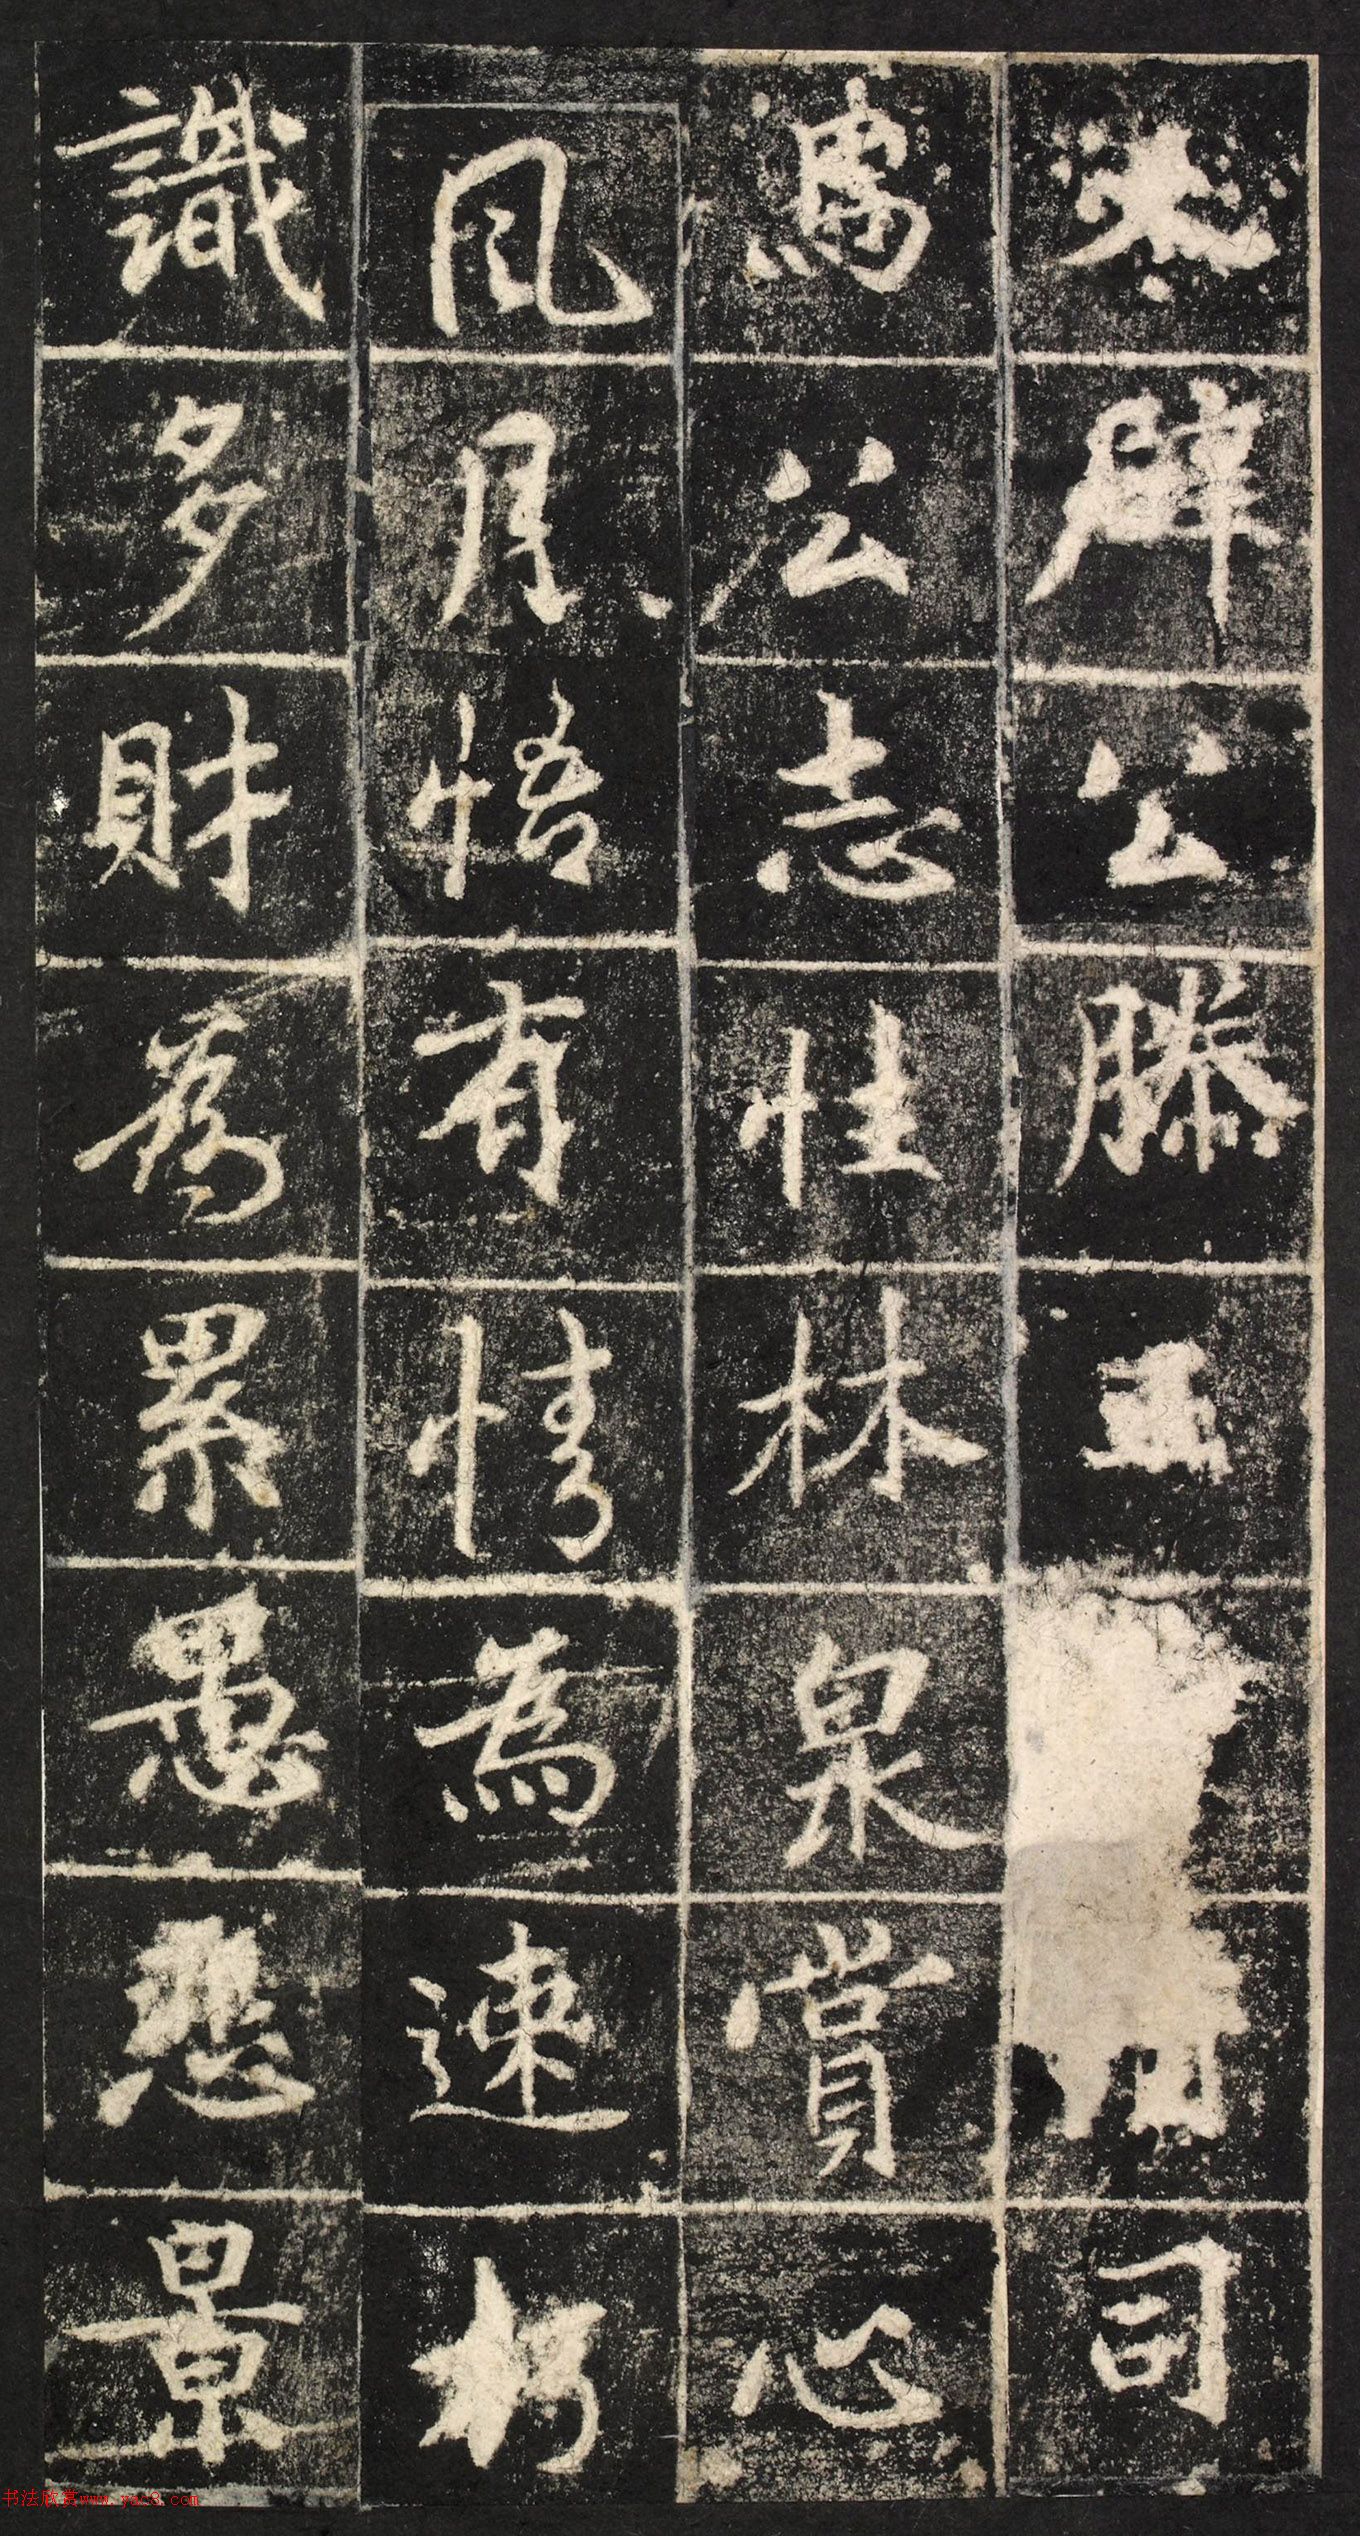 大辟公滕王□用司
馬公志性林泉賞心
風月悟有情為速朽
識多財為累愚悲景
书法欣赏www.yac8.com